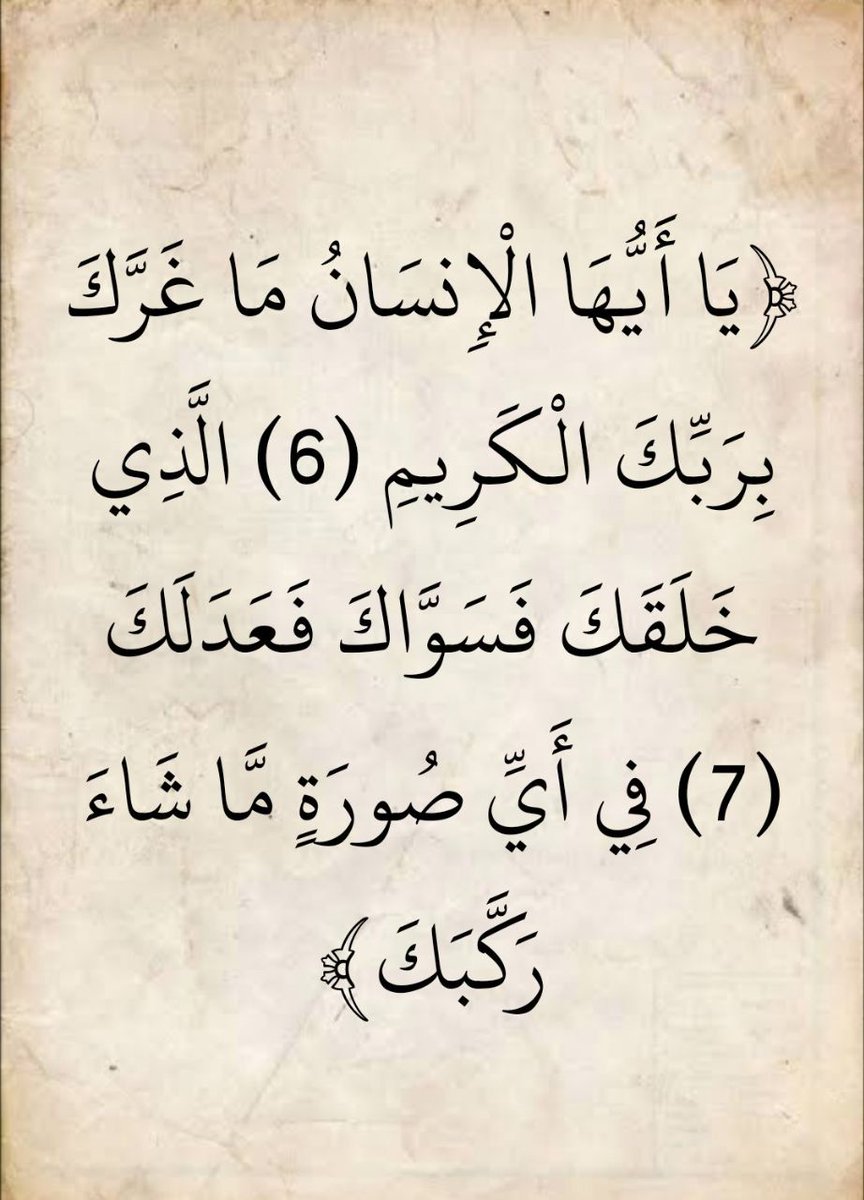 ﴿يَا أَيُّهَا الْإِنسَانُ مَا غَرَّكَ
بِرَبِّكَ الْكَرِيمِ (6) الَّذِي
خَلَقَكَ فَسَوَّاكَ فَعَدَلَكَ
(7) فِي أَيِّ صُورَةٍ مَّا شَاءَ
رَكَّبَكَ ﴾